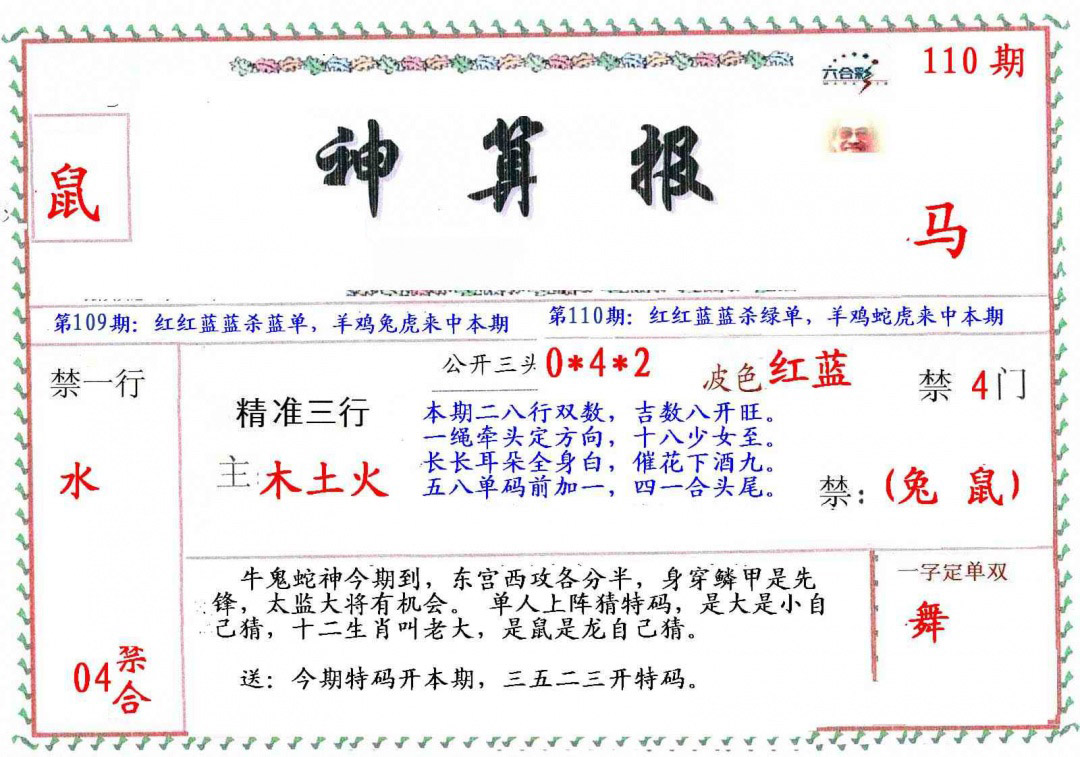 110期
六合彩
神算报
鼠
马
第109期：红红蓝蓝杀蓝单，羊鸡兔虎来中本期
第110期：红红蓝蓝杀绿单，羊鸡蛇虎来中本期
禁一行
水
04禁合
精准三行
主:木土火
公开三头0*4*2
波色红蓝
本期二八行双数，吉数八开旺。
一绳牵头定方向，十八少女至。
长长耳朵全身白，催花下酒九。
五八单码前加一，四一合头尾。
禁4门
禁：(兔鼠)
牛鬼蛇神今期到，东宫西攻各分半，身穿鳞甲是先
锋，太监大将有机会。 单人上阵猜特码，是大是小自
己猜，十二生肖叫老大，是鼠是龙自己猜。
送：今期特码开本期，三五二三开特码。
一字定单双
舞